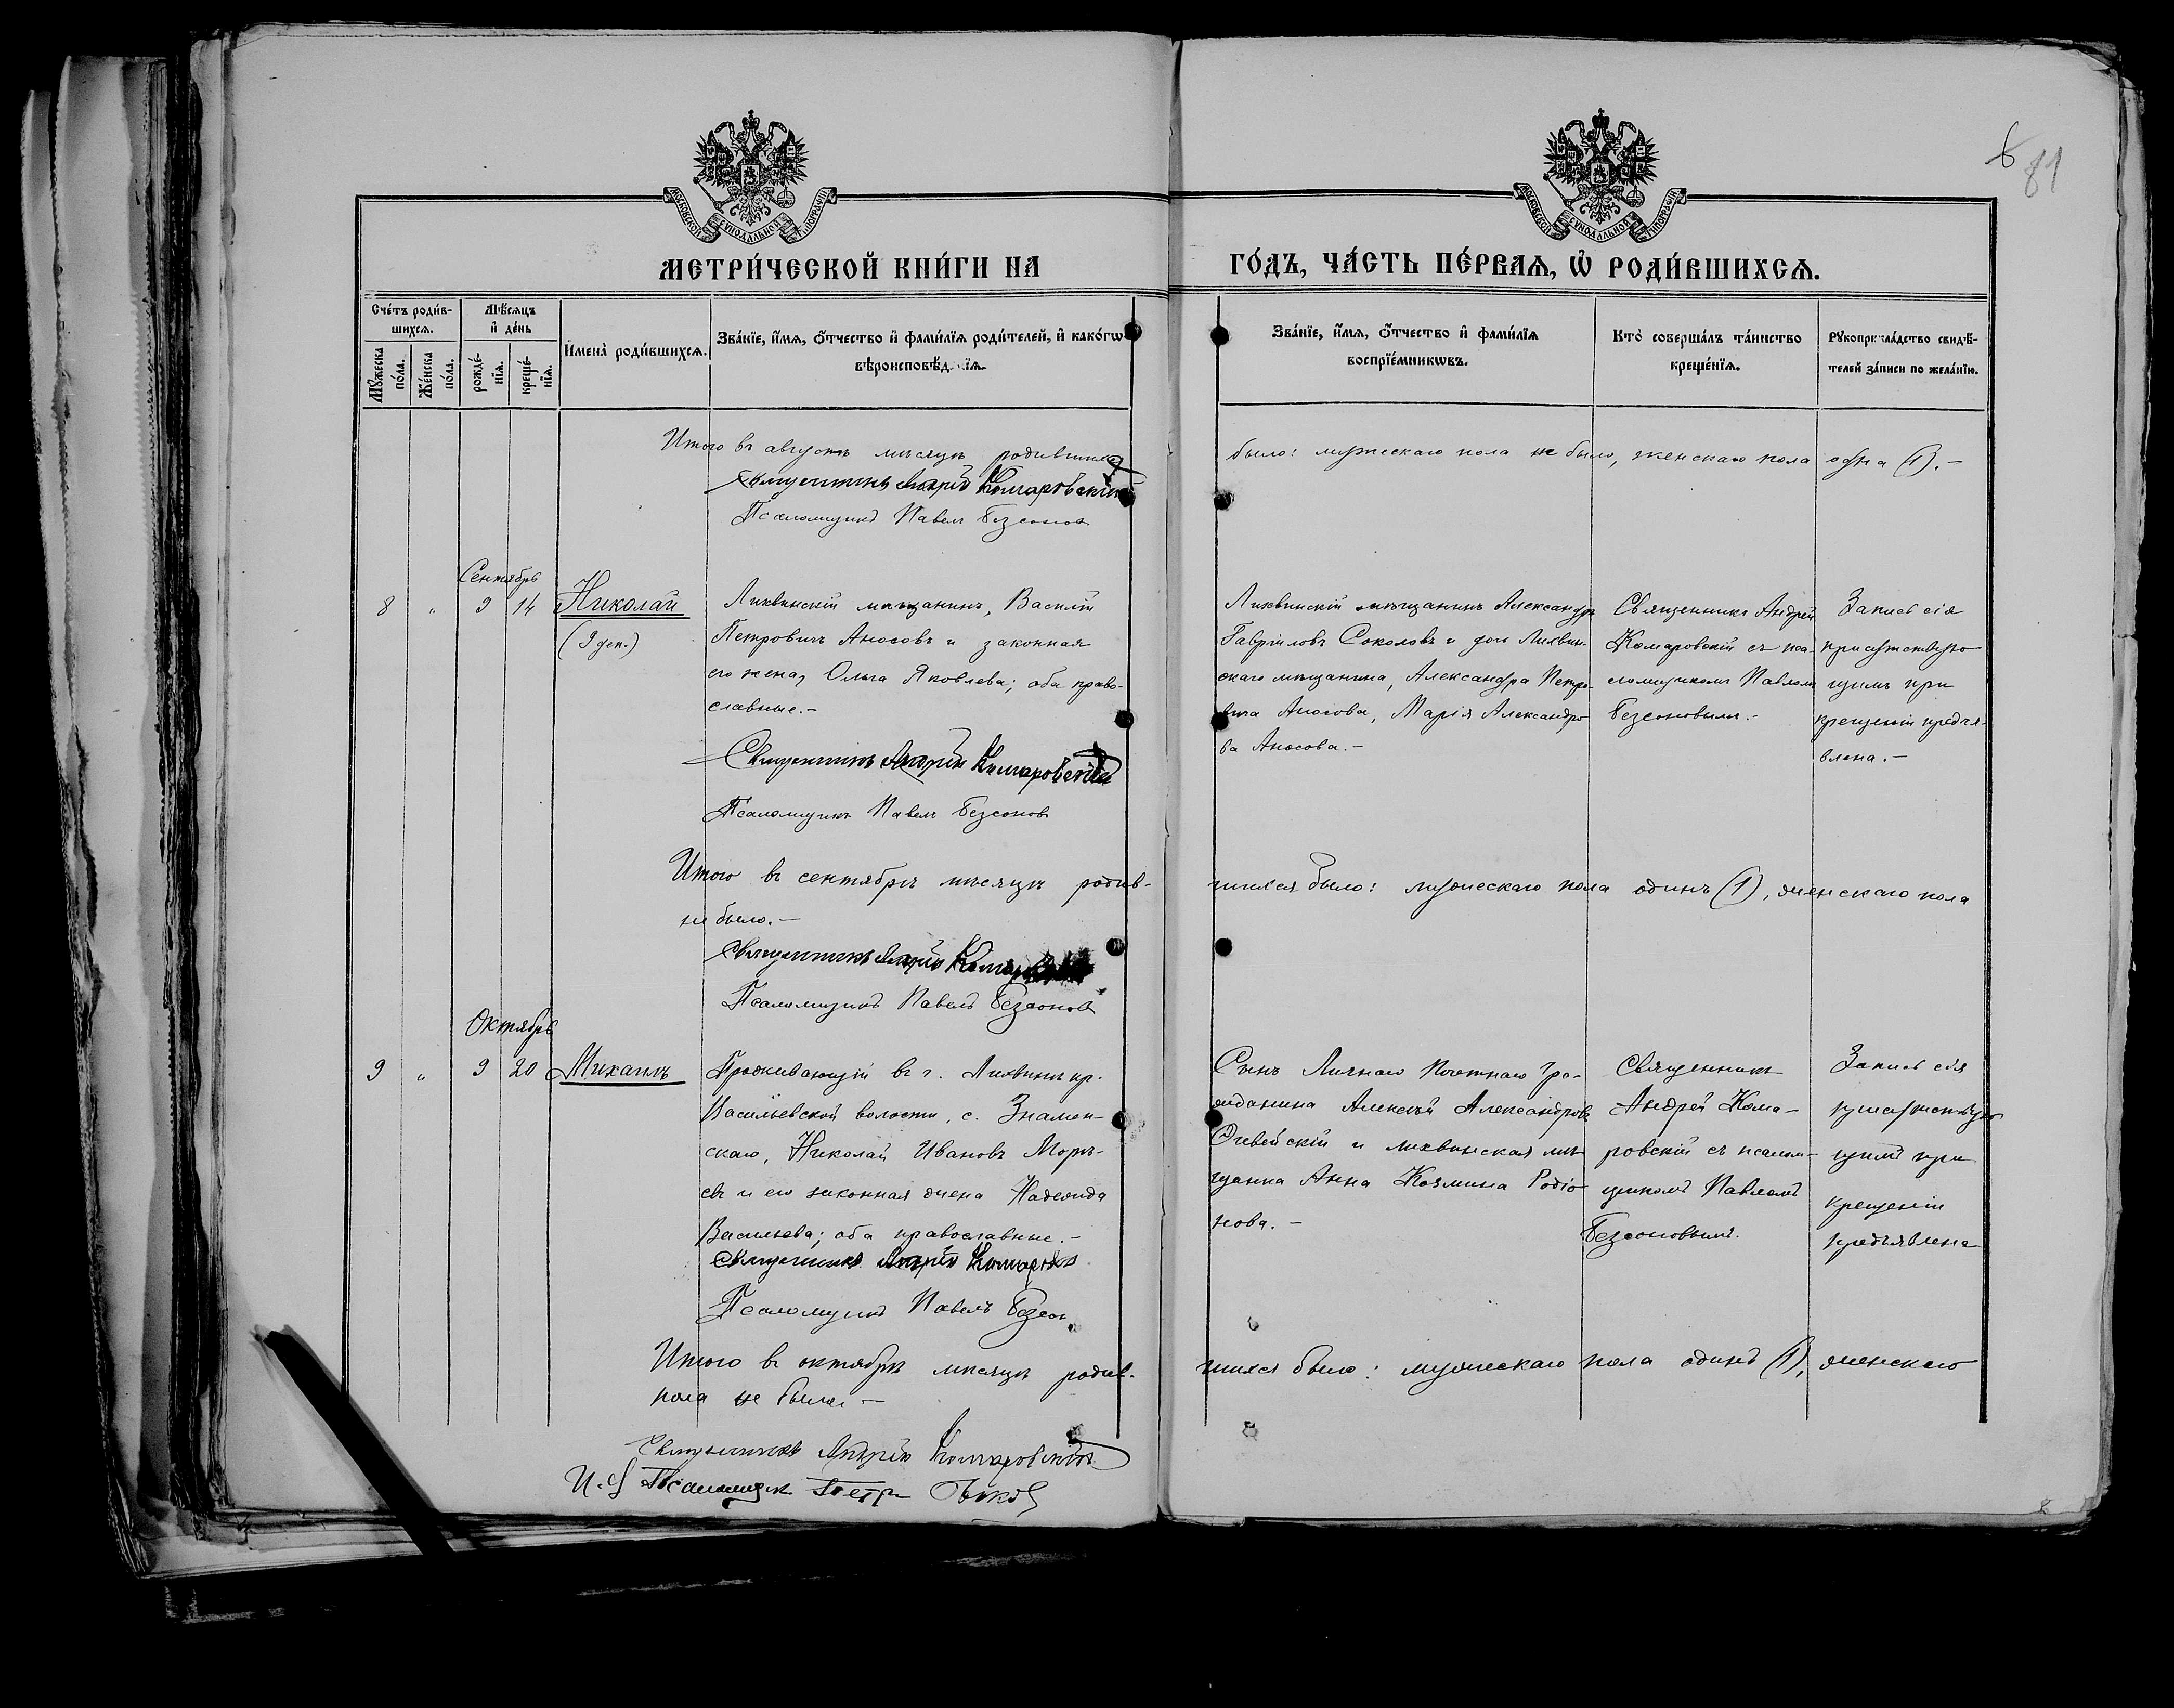 6 81
МОСКОВСКОЙ СѴНОДАЛЬНОЙ ТИПОГРАФІИ
МОСКОВСКОЙ СѴНОДАЛЬНОЙ ТИПОГРАФІИ
МЕТРИ́ЧЕСКОЙ КНИ́ГИ НА
ГО́ДЪ, ЧА́СТЬ ПЕ́РВАѦ, Ѡ҆ РОДИ́ВШИХСѦ.
Сче́тъ роди́в-
шихсѧ.
Мѣ́сѧцъ
и҆ де́нь
Мꙋ́жеска
по́ла.
Же́нска
по́ла.
рожде́-
нїѧ.
креще́-
нїѧ.
И҆мена̀ роди́вшихсѧ.
Зва́нїе, и҆́мѧ, ѻ҆́тчество и҆ фами́лїѧ роди́телей, и҆ како́гѡ
вѣроисповѣ́д їѧ.
Зва́нїе, и҆́мѧ, ѻ҆́тчество и҆ фами́лїѧ
воспрїе́мникѡвъ.
Кто̀ соверша́лъ та́инство
креще́нїѧ.
Рꙋкоприкла́дство свидѣ́-
телей за́писи по жела́нїю.
Итого въ августѣ мѣсяцѣ родившихся
было: мужескаго пола не было, женскаго пола одна (1).-
Священникъ Андрей Комаровскій
Псаломщикъ Павелъ Безсонов
Сентябрь
8 " 9 14 Николай
(9 ден.)
Лихвинскій мѣщанинъ, Василій
Петровичъ Аносовъ и законная
его жена, Ольга Яковлева; оба право-
славные.-
Священникъ Андрей Комаровскій
Псаломщикъ Павелъ Безсоновъ
Лихвинскій мѣщанинъ Александръ
Гавріиловъ Соколовъ и дочь Лихвин-
скаго мѣщанина, Александра Петро-
вича Аносова, Марія Александро-
ва Аносова.-
Священникъ Андрей
Комаровскій съ пса-
ломщикомъ Павломъ
Безсоновымъ.-
Запись сія
присутствую
щимъ при
крещеніи предъя-
влена.-
Итого въ сентябрѣ мѣсяцѣ родив-
шихся было: мужескаго пола одинъ (1), женскаго пола
не было.-
Священникъ Андрей
Псаломщикъ Павелъ Безсонов
Октябрь
9 " 9 20 Михаилъ
Проживающій въ г. Лихвинѣ кр.
Васильевской волости, с. Знамен-
скаго, Николай Ивановъ
и его законная жена Надежда
Васильева; оба православные.-
Священникъ Андрей
Псаломщикъ Павелъ Безсон
Сынъ Личнаго Почетнаго Гра-
жданина Алексѣй Александровъ
и лихвинская мѣ-
щанка Анна Козмина Родіо-
нова.-
Священникъ
Андрей Кома-
ровскій съ псалом-
щикомъ Павломъ
Безсоновымъ.
Запись сія
присутствую
щимъ при
крещеніи
предъявлена
Итого въ октябрѣ мѣсяцѣ родив-
шихся было: мужескаго пола одинъ (1), женскаго
пола не было.-
Священникъ Андрей Комаровскій
Псаломщик Петр
8